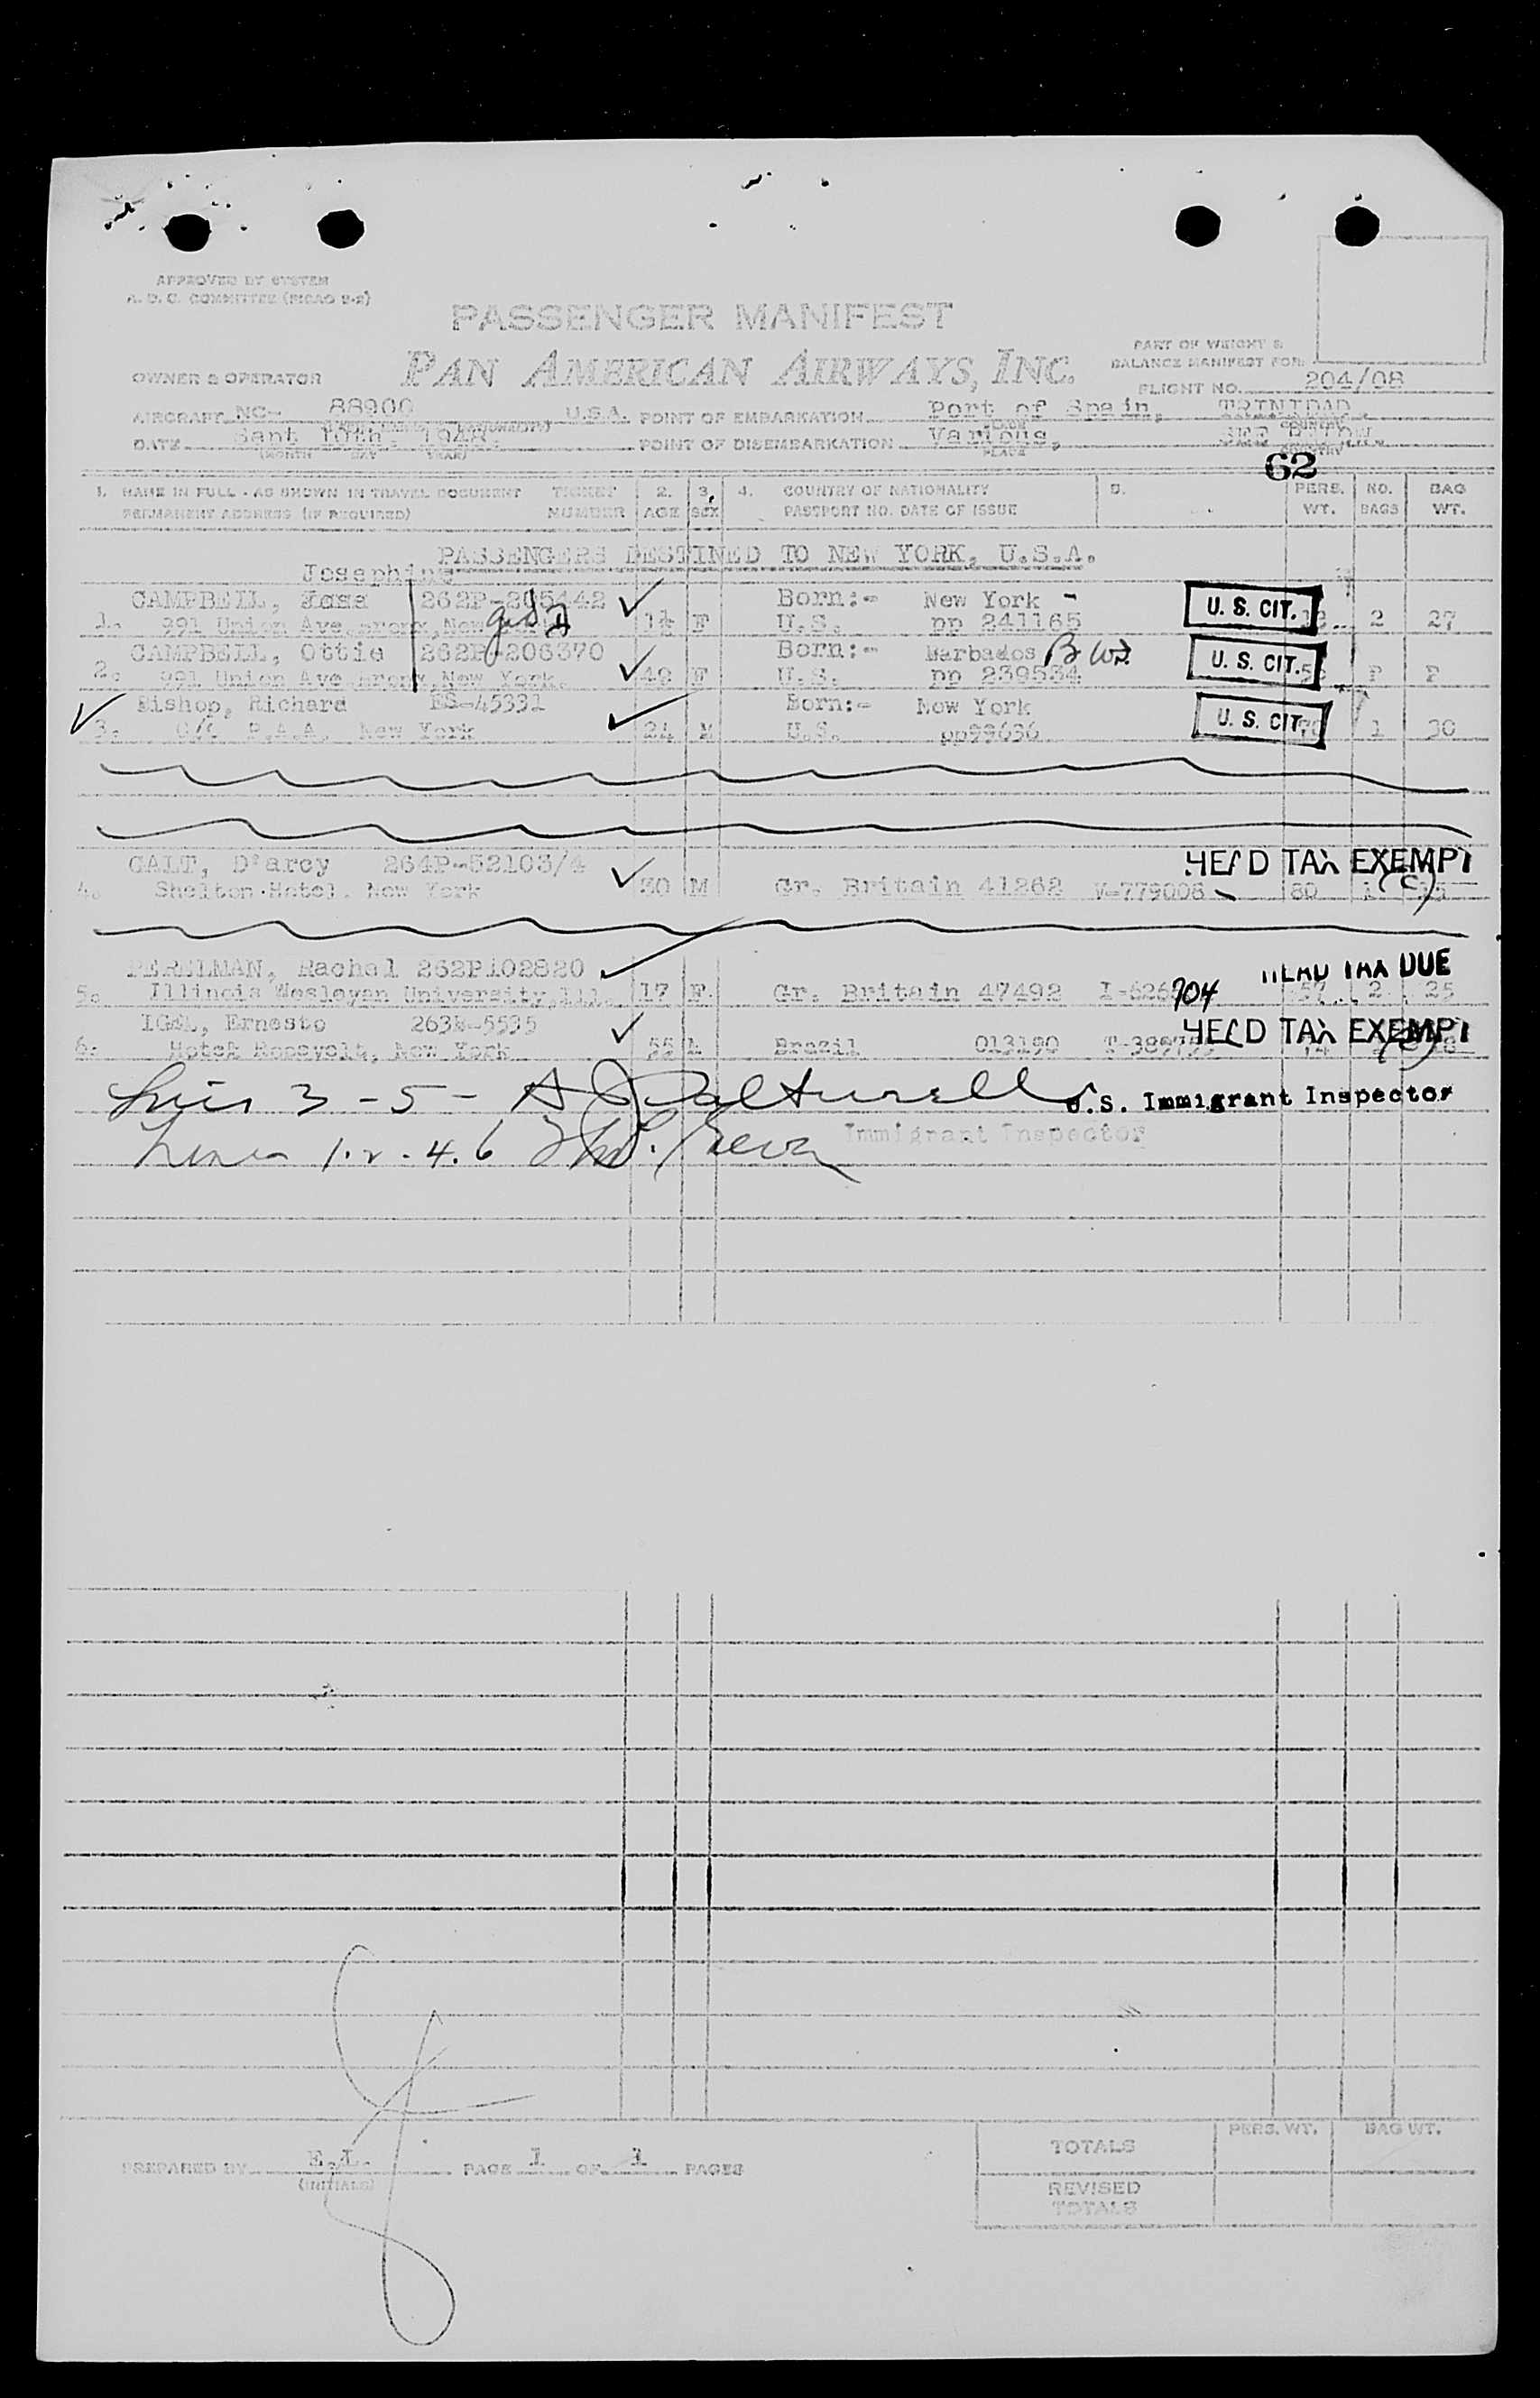 APPROVED BY SYSTEM
A. D. C. COMMITTEE (PICAO 2-2)
PASSENGER MANIFEST
PART OF WEIGHT &
BALANCE MANIFEST FOR:
OWNER & OPERATOR
PAN AMERICAN AIRWAYS, INC.
FLIGHT NO. 204/08
AIRCRAFT NC- 88900 U.S.A. POINT OF EMBARKATION Port of Spain, TRINIDAD.
DATE Sept 10th. 1948. POINT OF DISEMBARKATION Various, SEE BELOW.
(MONTH DAY YEAR) PLACE COUNTRY
62
1. NAME IN FULL - AS SHOWN IN TRAVEL DOCUMENT TICKET 2. 3. 4. COUNTRY OF NATIONALITY 5. PERS. NO. BAG
PERMANENT ADDRESS (IF REQUIRED) NUMBER AGE SEX PASSPORT NO. DATE OF ISSUE WT. BAGS WT.
PASSENGERS DESTINED TO NEW YORK, U.S.A.
Josephine
CAMPBELL, 262P-205442 Born:- New York - U. S. CIT.
1. 991 Union Ave. Bronx, New F U.S. pp 241165 2 27
CAMPBELL, Ottie 262P-206370 Born:- Barbados BWI U. S. CIT.
2. 991 Union Ave Bronx, New York. 49 F U.S. pp 239534 P P
Bishop, Richard ES-45331 Born:- New York U. S. CIT.
3. C/C P.A.A. New York 24 M U.S. pp99636 1 30
GALT, D'arcy 264P-52103/4 HEAD TAX EXEMPT
4. Shelton Hotel. New York 30 M Gr. Britain 41262 V-779008 80 1 (c)
PERELMAN, Rachel 262P102820 HEAD TAX DUE
5. Illinois Wesleyan University, Ill. 17 F. Gr. Britain 47492 704 57 2 25
IGEL, Ernesto 263E-5535 HEAD TAX EXEMPT
6. Hotel Roosevelt, New York 55 M Brazil 013190
3 - 5 - U.S. Immigrant Inspector
Immigrant Inspector
Lines 1. 2. 4. 6
PREPARED BY E.L. PAGE 1 OF 1 PAGES
(INITIALS)
PERS. WT. BAG WT.
TOTALS
REVISED
TOTALS